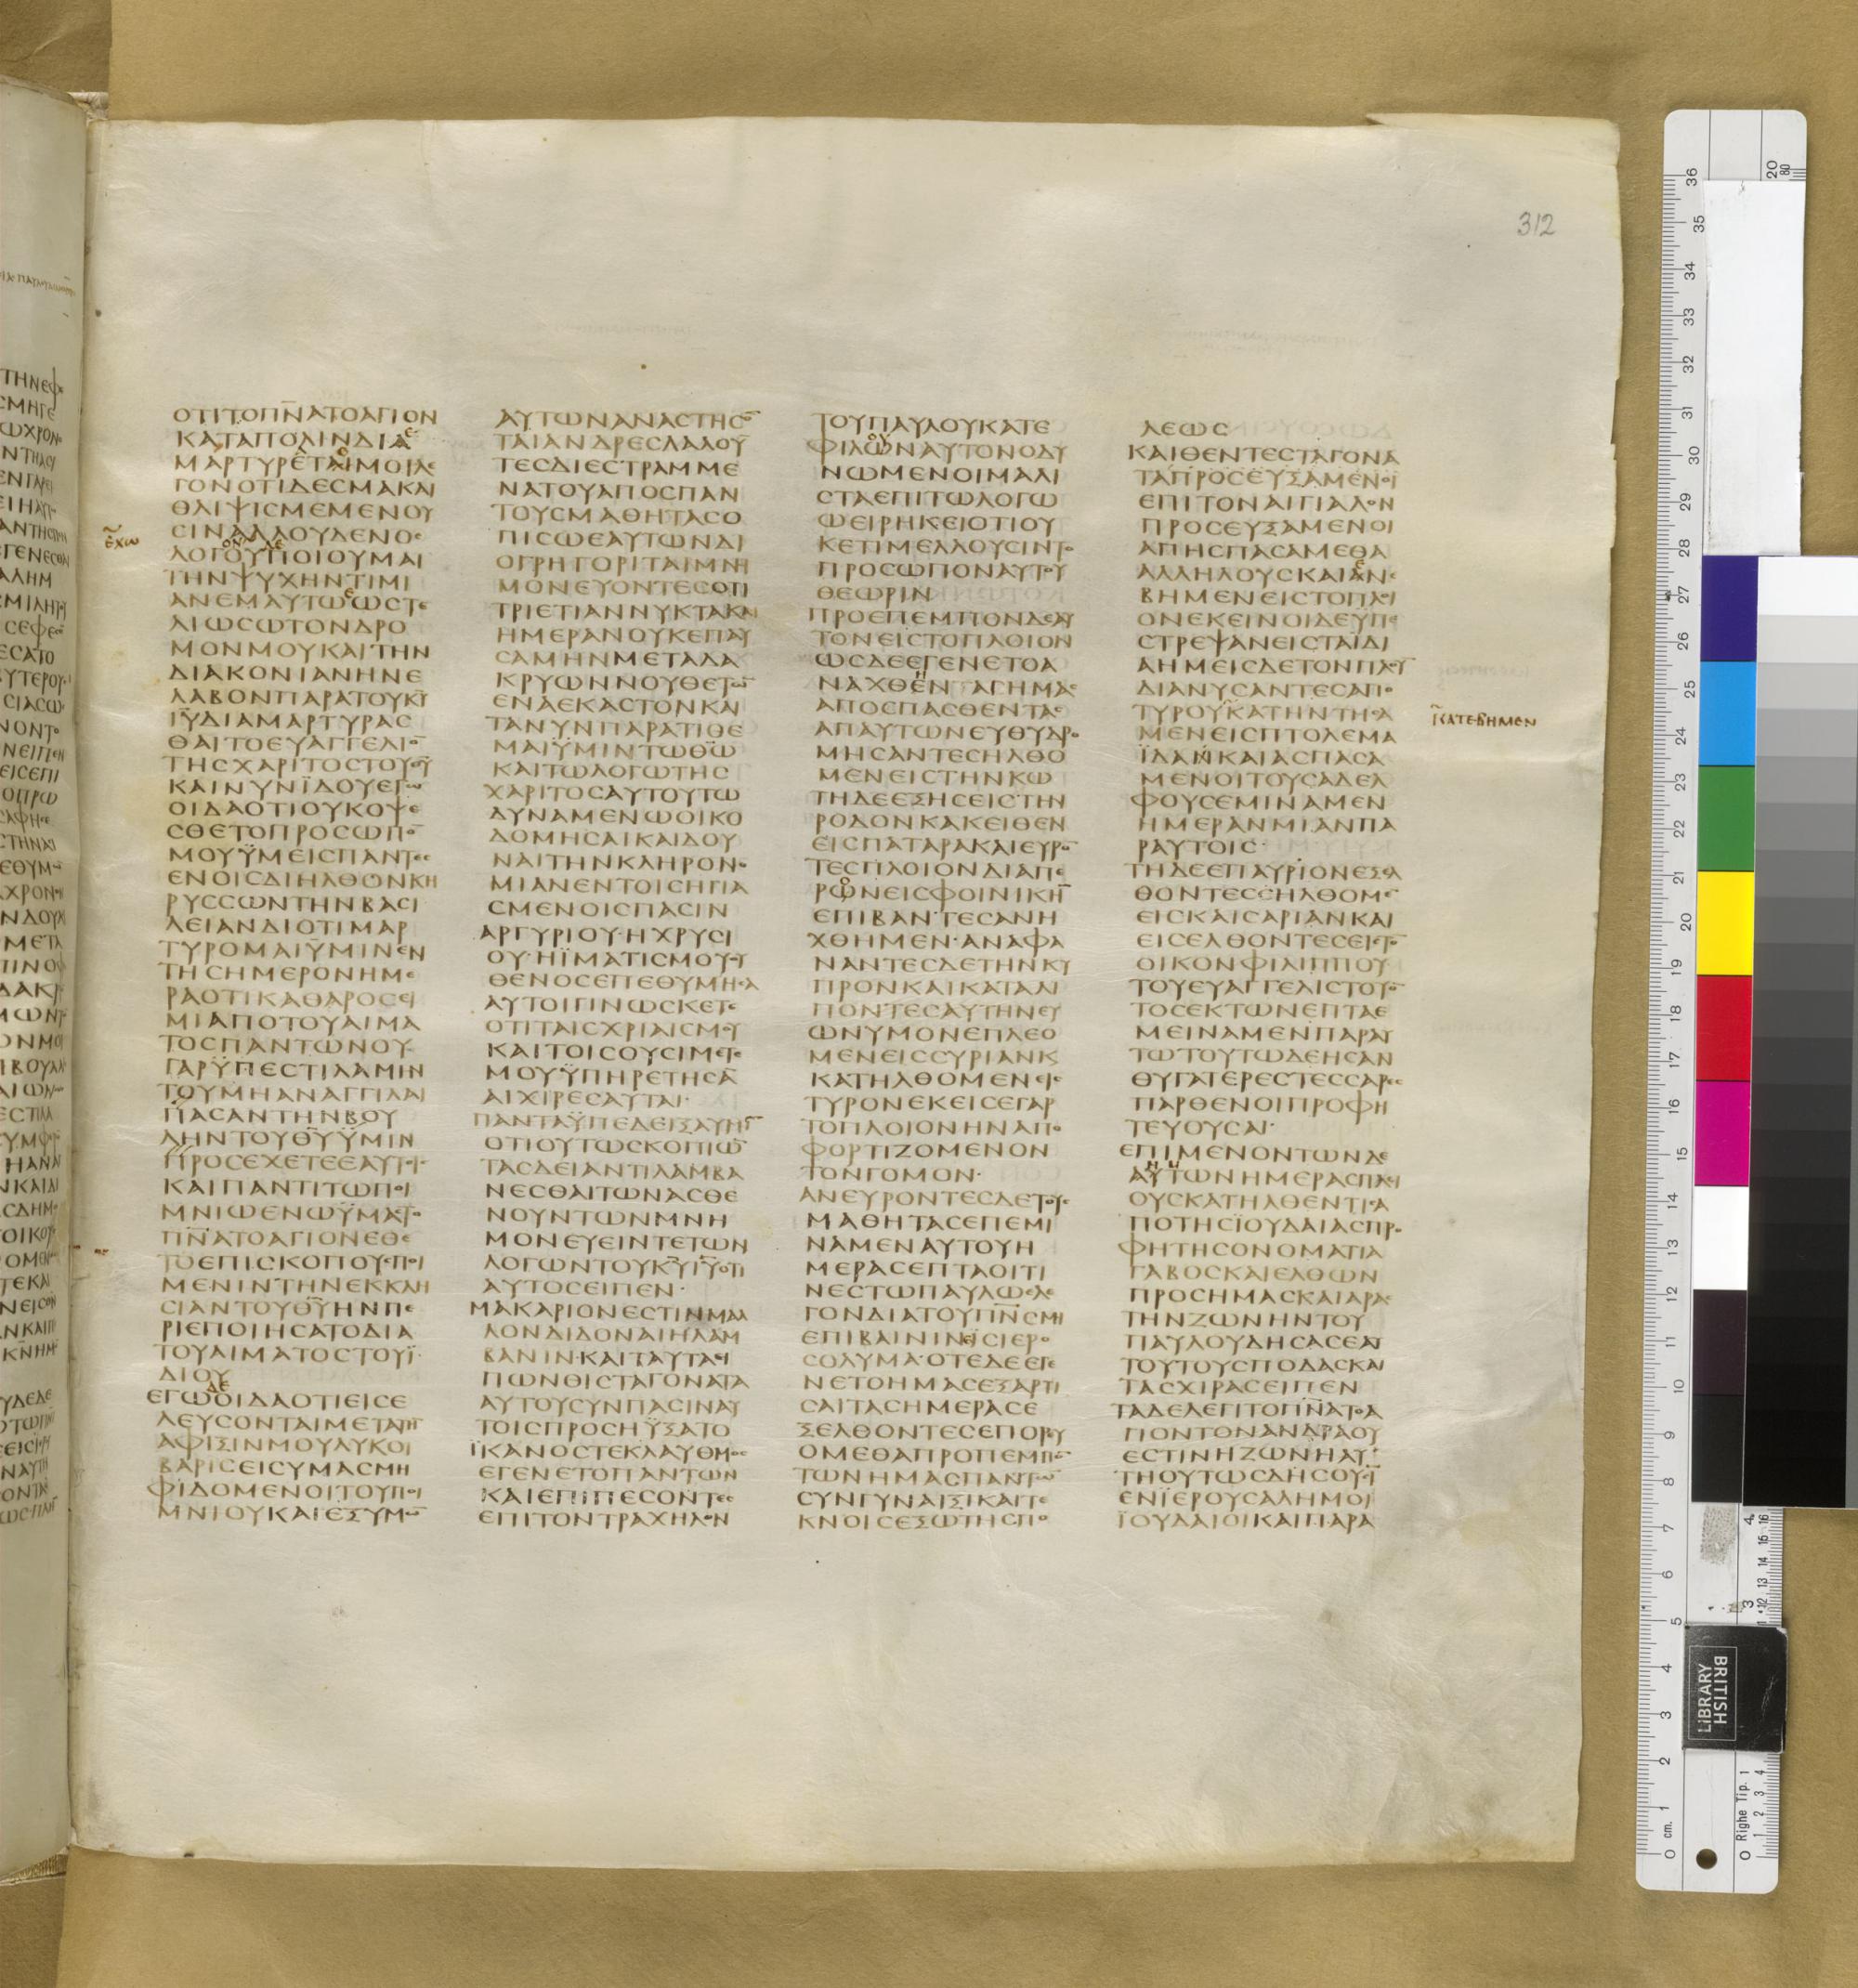 312
ΟΤΙΤΟΠΝ̅ΑΤΟΑΓΙΟΝ
ΚΑΤΑΠΟΛΙΝΔΙΑ
ΜΑΡΤΥΡΕΤΑΙΜΟΙΛΕ
ΓΟΝΟΤΙΔΕΣΜΑΚΑΙ
ΘΛΙΨΙΣΜΕΜΕΝΟΥ
ΣΙΝΑΛΛΟΥΔΕΝΟΣ
ΛΟΓΟΥΠΟΙΟΥΜΑΙ
ΤΗΝΨΥΧΗΝΤΙΜΙ
ΑΝΕΜΑΥΤΩΩΣΤΕ
ΛΙΩΣΩΤΟΝΔΡΟ
ΜΟΝΜΟΥΚΑΙΤΗΝ
ΔΙΑΚΟΝΙΑΝΗΝΕ
ΛΑΒΟΝΠΑΡΑΤΟΥΚΥ̅
ΙΥ̅ΔΙΑΜΑΡΤΥΡΑΣ
ΘΑΙΤΟΕΥΑΓΓΕΛΙΟ̅
ΤΗΣΧΑΡΙΤΟΣΤΟΥΘΥ̅
ΚΑΙΝΥΝΪΔΟΥΕΓΩ
ΟΙΔΑΟΤΙΟΥΚΟΨΕ
ΣΘΕΤΟΠΡΟΣΩΠΟ̅
ΜΟΥΫΜΕΙΣΠΑΝΤΕΣ
ΕΝΟΙΣΔΙΗΛΘΟΝΚΗ
ΡΥΣΣΩΝΤΗΝΒΑΣΙ
ΛΕΙΑΝΔΙΟΤΙΜΑΡ
ΤΥΡΟΜΑΙΫΜΙΝΕΝ
ΤΗΣΗΜΕΡΟΝΗΜΕ
ΡΑΟΤΙΚΑΘΑΡΟΣΕΙ
ΜΙΑΠΟΤΟΥΑΙΜΑ
ΤΟΣΠΑΝΤΩΝΟΥ
ΓΑΡΫΠΕΣΤΙΛΑΜΗΝ
ΤΟΥΜΗΑΝΑΓΓΙΛΑΙ
ΠΑΣΑΝΤΗΝΒΟΥ
ΛΗΝΤΟΥΘΥ̅ΫΜΙΝ
ΠΡΟΣΕΧΕΤΕΕΑΥΤΟΙΣ
ΚΑΙΠΑΝΤΙΤΩΠΟΙ
ΜΝΙΩΕΝΩΫΜΑΣΤΟ
ΠΝ̅ΑΤΟΑΓΙΟΝΕΘΕ
ΤΟΕΠΙΣΚΟΠΟΥΣΠΟΙ
ΜΕΝΙΝΤΗΝΕΚΚΛΗ
ΣΙΑΝΤΟΥΘΥ̅ΗΝΠΕ
ΡΙΕΠΟΙΗΣΑΤΟΔΙΑ
ΤΟΥΑΙΜΑΤΟΣΤΟΥΪ
ΔΙΟΥ
ΕΓΩΟΙΔΑΟΤΙΕΙΣΕ
ΛΕΥΣΟΝΤΑΙΜΕΤΑΤΗ̅
ΑΦΙΞΙΝΜΟΥΛΥΚΟΙ
ΒΑΡΙΣΕΙΣΥΜΑΣΜΗ
ΦΙΔΟΜΕΝΟΙΤΟΥΠΟΙ
ΜΝΙΟΥΚΑΙΕΞΥΜΩ̅
ΕΧΩ
ΑΥΤΩΝΑΝΑΣΤΗΣΟ̅
ΤΑΙΑΝΔΡΕΣΛΑΛΟΥ̅
ΤΕΣΔΙΕΣΤΡΑΜΜΕ
ΝΑΤΟΥΑΠΟΣΠΑΝ
ΤΟΥΣΜΑΘΗΤΑΣΟ
ΠΙΣΩΕΑΥΤΩΝΔΙ
ΟΓΡΗΓΟΡΙΤΑΙΜΝΗ
ΜΟΝΕΥΟΝΤΕΣΟΤΙ
ΤΡΙΕΤΙΑΝΝΥΚΤΑΚΑΙ
ΗΜΕΡΑΝΟΥΚΕΠΑΥ
ΣΑΜΗΝΜΕΤΑΔΑ
ΚΡΥΩΝΝΟΥΘΕΤΩ̅
ΕΝΑΕΚΑΣΤΟΝΚΑΙ
ΤΑΝΥΝΠΑΡΑΤΙΘΕ
ΜΑΙΫΜΙΝΤΩΘΩ̅
ΚΑΙΤΩΛΟΓΩΤΗΣ
ΧΑΡΙΤΟΣΑΥΤΟΥΤΩ
ΔΥΝΑΜΕΝΩΟΙΚΟ
ΔΟΜΗΣΑΙΚΑΙΔΟΥ
ΝΑΙΤΗΝΚΛΗΡΟΝΟ
ΜΙΑΝΕΝΤΟΙΣΗΓΙΑ
ΣΜΕΝΟΙΣΠΑΣΙΝ
ΑΡΓΥΡΙΟΥ·ΗΧΡΥΣΙ
ΟΥ·ΗΪΜΑΤΙΣΜΟΥΟΥ
ΘΕΝΟΣΕΠΕΘΥΜΗΣΑ
ΑΥΤΟΙΓΙΝΩΣΚΕΤΕ
ΟΤΙΤΑΙΣΧΡΙΑΙΣΜΟΥ
ΚΑΙΤΟΙΣΟΥΣΙΜΕΤΕ
ΜΟΥΫΠΗΡΕΤΗΣΑ̅
ΑΙΧΙΡΕΣΑΥΤΑΙ·
ΠΑΝΤΑΫΠΕΔΕΙΞΑΥΜΙ̅
ΟΤΙΟΥΤΩΣΚΟΠΙΩ̅
ΤΑΣΔΕΙΑΝΤΙΛΑΜΒΑ
ΝΕΣΘΑΙΤΩΝΑΣΘΕ
ΝΟΥΝΤΩΝΜΝΗ
ΜΟΝΕΥΕΙΝΤΕΤΩΝ
ΛΟΓΩΝΤΟΥΚΥ̅ΙΥ̅ΟΤΙ
ΑΥΤΟΣΕΙΠΕΝ·
ΜΑΚΑΡΙΟΝΕΣΤΙΝΜΑΛ
ΛΟΝΔΙΔΟΝΑΙΗΛΑΜ
ΒΑΝΙΝ·ΚΑΙΤΑΥΤΑΕΙ
ΠΩΝΘΙΣΤΑΓΟΝΑΤΑ
ΑΥΤΟΥΣΥΝΠΑΣΙΝΑΥ
ΤΟΙΣΠΡΟΣΗΫΞΑΤΟ
ΪΚΑΝΟΣΤΕΚΛΑΥΘΜΟΣ
ΕΓΕΝΕΤΟΠΑΝΤΩΝ
ΚΑΙΕΠΙΠΕΣΟΝΤΕΣ
ΕΠΙΤΟΝΤΡΑΧΗΛΟΝ
ΤΟΥΠΑΥΛΟΥΚΑΤΕ
ΦΙΛΩΝΑΥΤΟΝΟΔΥ
ΝΩΜΕΝΟΙΜΑΛΙ
ΣΤΑΕΠΙΤΩΛΟΓΩ
ΩΕΙΡΗΚΕΙΟΤΙΟΥ
ΚΕΤΙΜΕΛΛΟΥΣΙΝΤΟ
ΠΡΟΣΩΠΟΝΑΥΤΟΥ
ΘΕΩΡΙΝ
ΠΡΟΕΠΕΜΠΟΝΔΕΑΥ
ΤΟΝΕΙΣΤΟΠΛΟΙΟΝ
ΩΣΔΕΕΓΕΝΕΤΟΑ
ΝΑΧΘΕΝΑΙΗΜΑΣ
ΑΠΟΣΠΑΣΘΕΝΤΑΣ
ΑΠΑΥΤΩΝΕΥΘΥΔΡΟ
ΜΗΣΑΝΤΕΣΗΛΘΟ
ΜΕΝΕΙΣΤΗΝΚΩ
ΤΗΔΕΕΞΗΣΕΙΣΤΗΝ
ΡΟΔΟΝΚΑΚΕΙΘΕΝ
ΕΙΣΠΑΤΑΡΑΚΑΙΕΥΡΟ̅
ΤΕΣΠΛΟΙΟΝΔΙΑΠΕ
ΡΩΝΕΙΣΦΟΙΝΙΚΗ̅
ΕΠΙΒΑΝΤΕΣΑΝΗ
ΧΘΗΜΕΝ·ΑΝΑΦΑ
ΝΑΝΤΕΣΔΕΤΗΝΚΥ
ΠΡΟΝΚΑΙΚΑΤΑΛΙ
ΠΟΝΤΕΣΑΥΤΗΝΕΥ
ΩΝΥΜΟΝΕΠΛΕΟ
ΜΕΝΕΙΣΣΥΡΙΑΝΚΑΙ
ΚΑΤΗΛΘΟΜΕΝΕΙΣ
ΤΥΡΟΝΕΚΕΙΣΕΓΑΡ
ΤΟΠΛΟΙΟΝΗΝΑΠΟ
ΦΟΡΤΙΖΟΜΕΝΟΝ
ΤΟΝΓΟΜΟΝ·
ΑΝΕΥΡΟΝΤΕΣΔΕΤΟΥΣ
ΜΑΘΗΤΑΣΕΠΕΜΙ
ΝΑΜΕΝΑΥΤΟΥΗ
ΜΕΡΑΣΕΠΤΑΟΙΤΙ
ΝΕΣΤΩΠΑΥΛΩΕΛΕ
ΓΟΝΔΙΑΤΟΥΠΝ̅ΣΜΗ
ΕΠΙΒΑΙΝΙΝΕΙΣΙΕΡΟ
ΣΟΛΥΜΑ·ΟΤΕΔΕΕΓΕ
ΝΕΤΟΗΜΑΣΕΞΑΡΤΙ
ΣΑΙΤΑΣΗΜΕΡΑΣΕ
ΞΕΛΘΟΝΤΕΣΕΠΟΡΕΥ
ΟΜΕΘΑΠΡΟΠΕΜΠΟ̅
ΤΩΝΗΜΑΣΠΑΝΤΩ̅
ΣΥΝΓΥΝΑΙΞΙΚΑΙΤΕ
ΚΝΟΙΣΕΞΩΤΗΣΠΟ
ΛΕΩΣ
ΚΑΙΘΕΝΤΕΣΤΑΓΟΝΑ
ΤΑΠΡΟΣΕΥΞΑΜΕΝΟΙ
ΕΠΙΤΟΝΑΙΓΙΑΛΟΝ
ΠΡΟΣΕΥΞΑΜΕΝΟΙ
ΑΠΗΣΠΑΣΑΜΕΘΑ
ΑΛΛΗΛΟΥΣΚΑΙΑΝΕ
ΒΗΜΕΝΕΙΣΤΟΠΛΟΙ
ΟΝΕΚΕΙΝΟΙΔΕΥΠΕ
ΣΤΡΕΨΑΝΕΙΣΤΑΪΔΙ
ΑΗΜΕΙΣΔΕΤΟΝΠΛΟΥ̅
ΔΙΑΝΥΣΑΝΤΕΣΑΠΟ
ΤΥΡΟΥΚΑΤΗΝΤΗΣΑ
ΜΕΝΕΙΣΠΤΟΛΕΜΑ
ΪΔΑΝΚΑΙΑΣΠΑΣΑ
ΜΕΝΟΙΤΟΥΣΑΔΕΛ
ΦΟΥΣΕΜΙΝΑΜΕΝ
ΗΜΕΡΑΝΜΙΑΝΠΑ
ΡΑΥΤΟΙΣ·
ΤΗΔΕΕΠΑΥΡΙΟΝΕΞΕΛ
ΘΟΝΤΕΣΗΛΘΟΜΕ̅
ΕΙΣΚΑΙΣΑΡΙΑΝΚΑΙ
ΕΙΣΕΛΘΟΝΤΕΣΕΙΣΤΟ̅
ΟΙΚΟΝΦΙΛΙΠΠΟΥ
ΤΟΥΕΥΑΓΓΕΛΙΣΤΟΥΟ̅
ΤΟΣΕΚΤΩΝΕΠΤΑΕ
ΜΕΙΝΑΜΕΝΠΑΡΑΥ
ΤΩΤΟΥΤΩΔΕΗΣΑΝ
ΘΥΓΑΤΕΡΕΣΤΕΣΣΑΡΕΣ
ΠΑΡΘΕΝΟΙΠΡΟΦΗ
ΤΕΥΟΥΣΑΙ·
ΕΠΙΜΕΝΟΝΤΩΝΔΕ
ΑΥΤΩΝΗΜΕΡΑΣΠΛΕΙ
ΟΥΣΚΑΤΗΛΘΕΝΤΙΣΑ
ΠΟΤΗΣΪΟΥΔΑΙΑΣΠΡΟ
ΦΗΤΗΣΟΝΟΜΑΤΙΑ
ΓΑΒΟΣΚΑΙΕΛΘΩΝ
ΠΡΟΣΗΜΑΣΚΑΙΑΡΑΣ
ΤΗΝΖΩΝΗΝΤΟΥ
ΠΑΥΛΟΥΔΗΣΑΣΕΑΥ
ΤΟΥΤΟΥΣΠΟΔΑΣΚΑΙ
ΤΑΣΧΙΡΑΣΕΙΠΕΝ
ΤΑΔΕΛΕΓΙΤΟΠΝ̅ΑΤΟΑ
ΓΙΟΝΤΟΝΑΝΔΡΑΟΥ
ΕΣΤΙΝΗΖΩΝΗΑΥ
ΤΗΟΥΤΩΣΔΗΣΟΥΣΙ̅
ΕΝΪΕΡΟΥΣΑΛΗΜΟΙ
ΪΟΥΔΑΙΟΙΚΑΙΠΑΡΑ
ΚΑΤΕΒΗΜΕΝ
LIBRARY
BRITISH